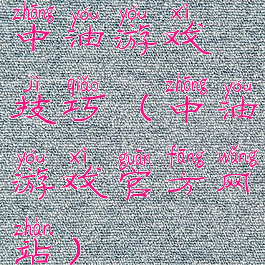 zhōng yóu yóu xì
中油游戏
jì qiǎo zhōng yóu
技巧(中油
yóu xì guān fāng wǎng
游戏官方网
zhàn
站)